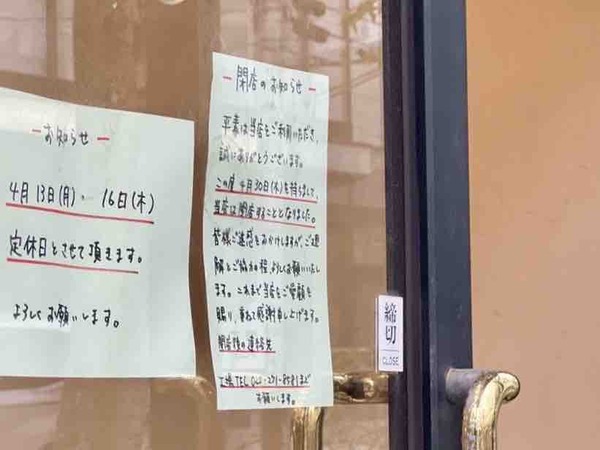 ー お知らせ ー
4月13日(月)・16日(木)
定休日とさせて頂きます。
よろしくお願いします。
ー 閉店のお知らせ ー
平素は当店をご利用いただき、
誠にありがとうございます。
この度 4月30日(木)を持ちまして、
当店は閉店することとなりました。
皆様ご迷惑をおかけしますが、ご理
解とご協力の程、よろしくお願いいたし
ます。これまで当店をご愛顧を
賜り、重ねて感謝申し上げます。
閉店後の連絡先
工場 TEL
まで
お願いします。
締切
CLOSE